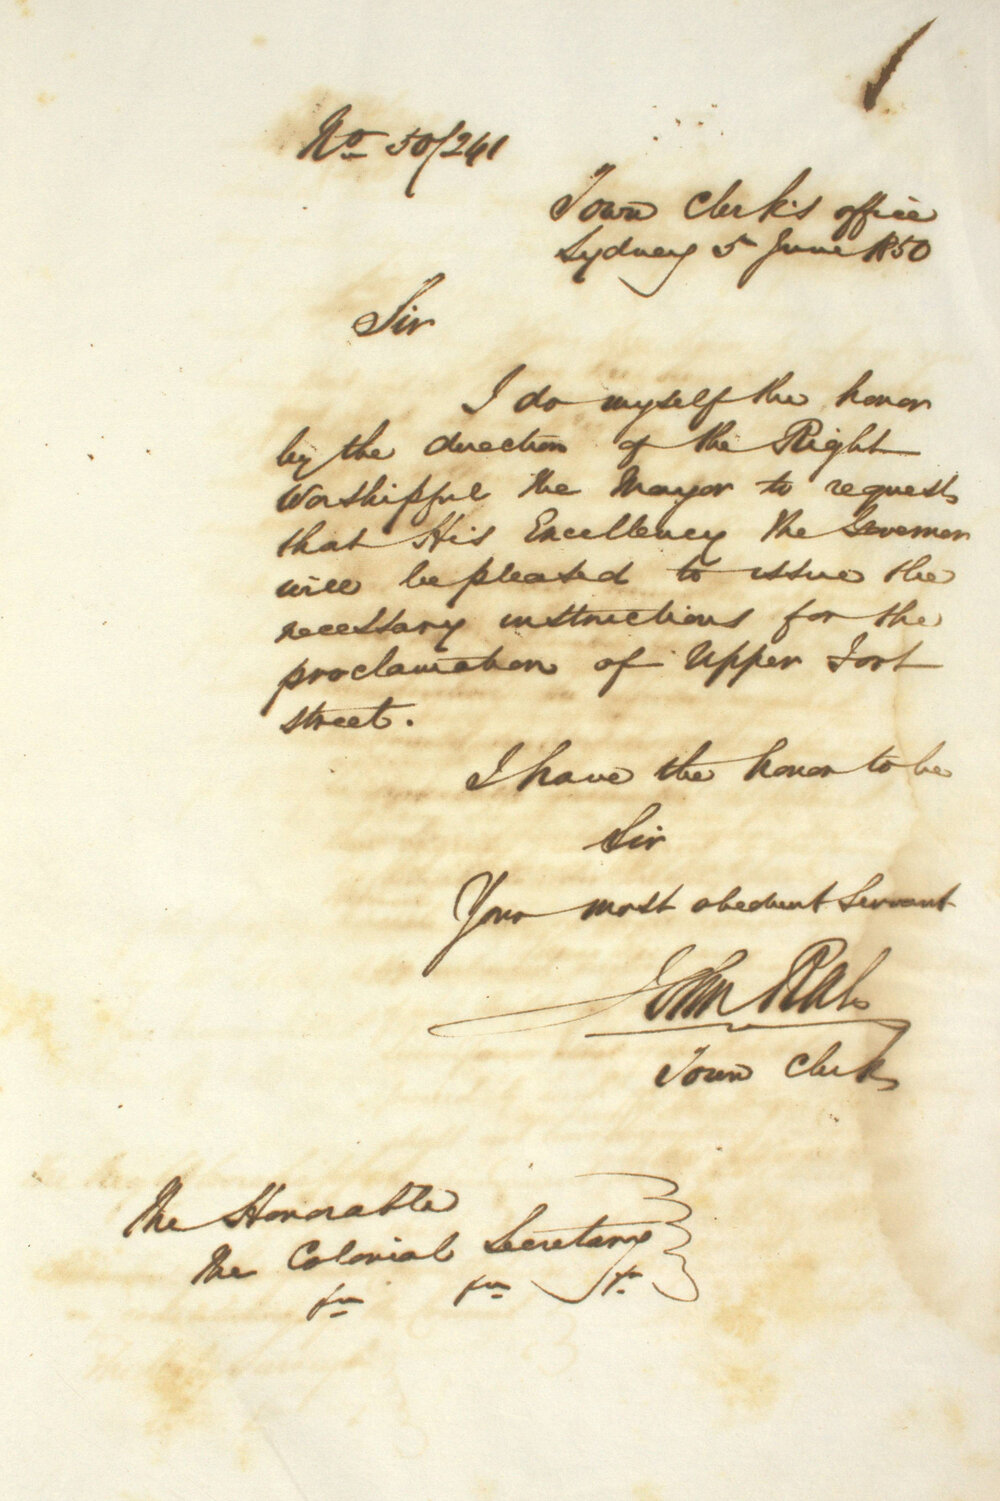 No 50/241
Town Clerk's office
Sydney 5 June 1850
Sir
I do myself the honor
by the direction of the Right
Worshipful the Mayor to request
that His Excellency the Governor
will be pleased to issue the
necessary instructions for the
proclamation of Upper Fort
street.
I have the honor to be
Sir
Your most obedient Servant
John Rae
Town Clerk
The Honorable
The Colonial Secretary